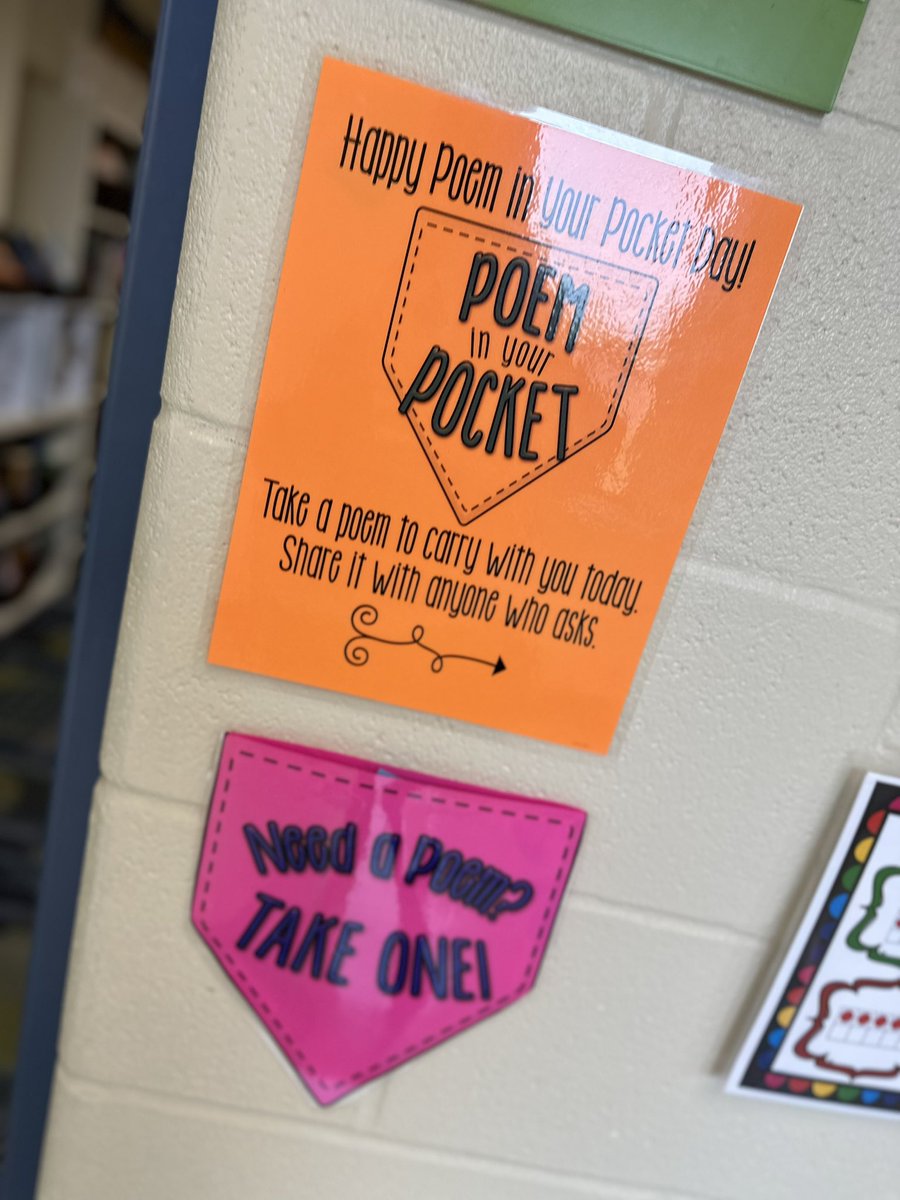 Happy Poem in your Pocket Day!
POEM
in your
POCKET
Take a poem to carry with you today.
Share it with anyone who asks.
Need a Poem?
TAKE ONE!